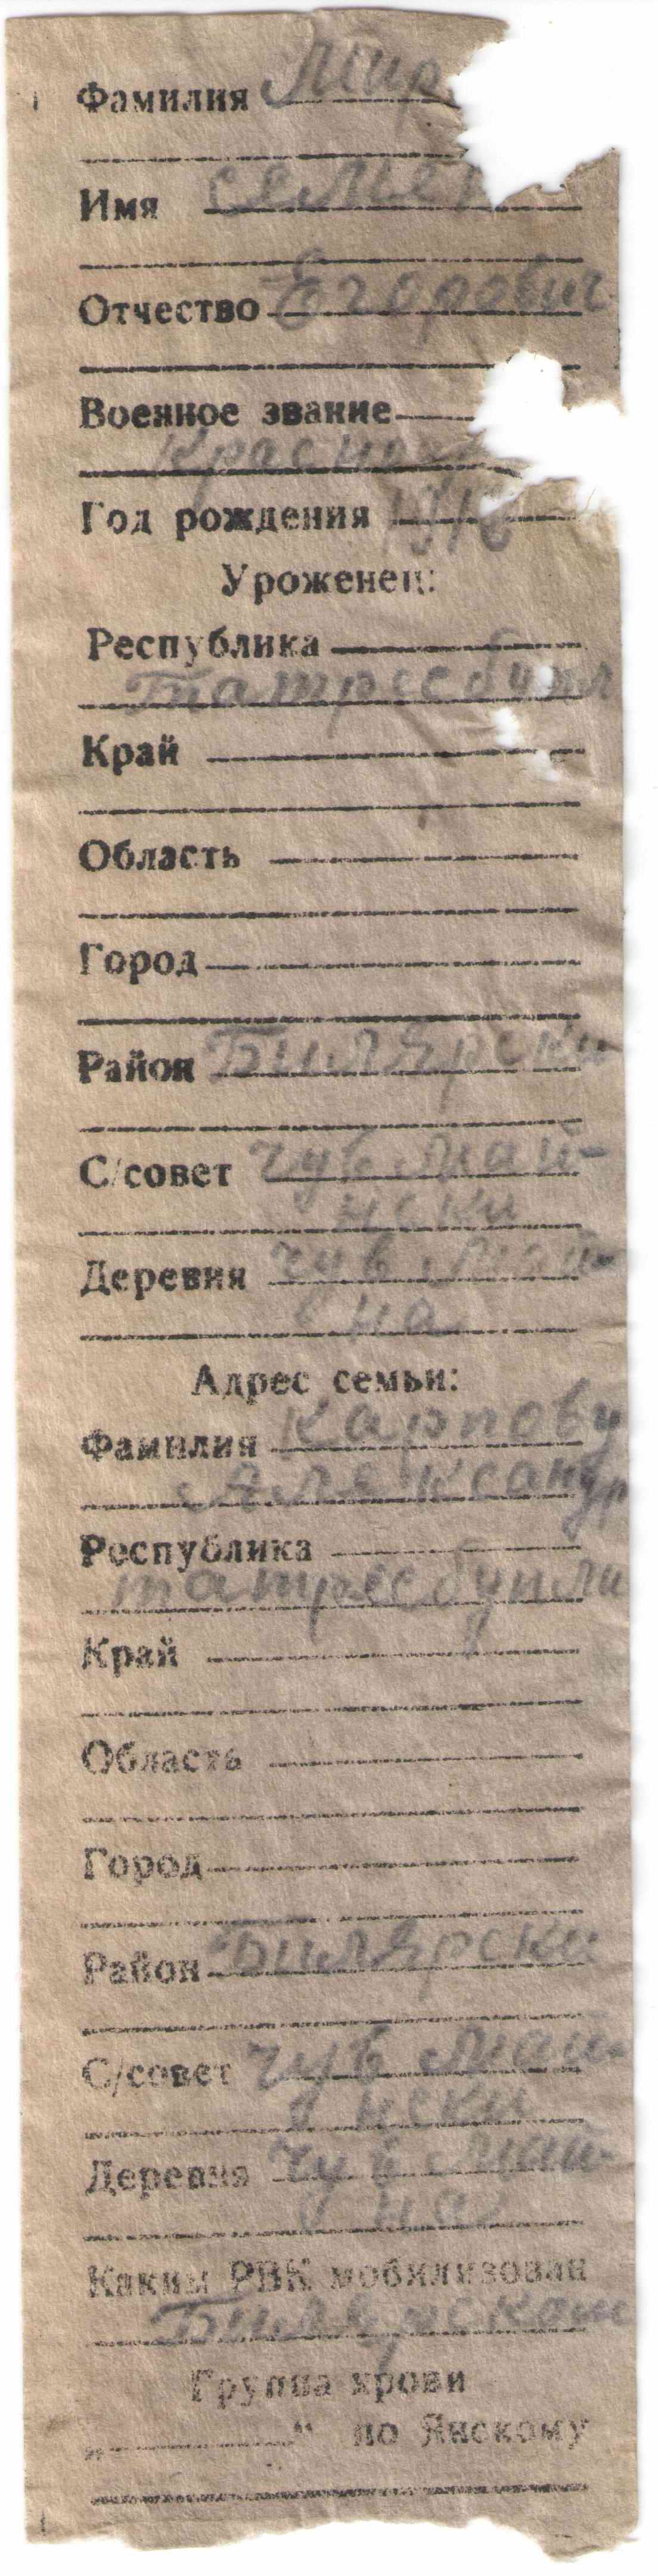 Фамилия Мир
Имя Семен
Отчество Егорович
Военное звание
Красноар
Год рождения 1918
Уроженец:
Республика
Татреспубли
Край
Область
Город
Район Билярски
С/совет Чув Май-
нски
Деревня Чув Май-
на
Адрес семьи:
Фамилия Карпову
Александр
Республика
татреспубли
Край
Область
Город
Район Билярски
С/совет Чув Май-
нски
Деревня Чув Май-
на
Каким РВК мобилизован
Билярском
Группа крови
„ “ по Янскому